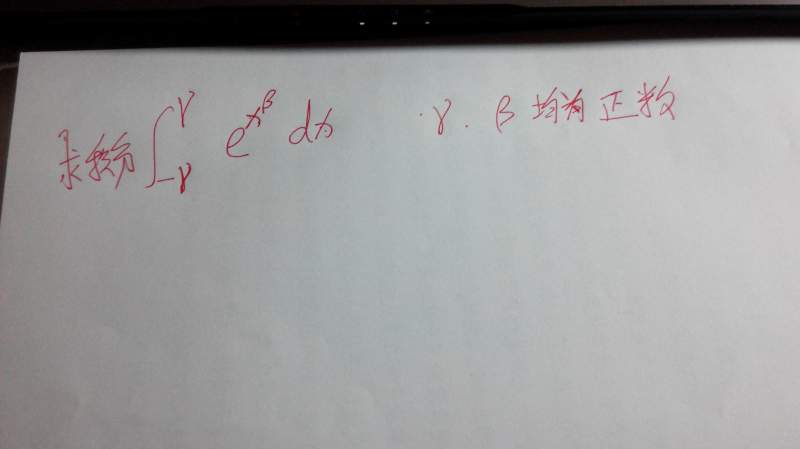 求积分 ∫_{-γ}^{γ} e^{x^β} dx γ. β 均为正数